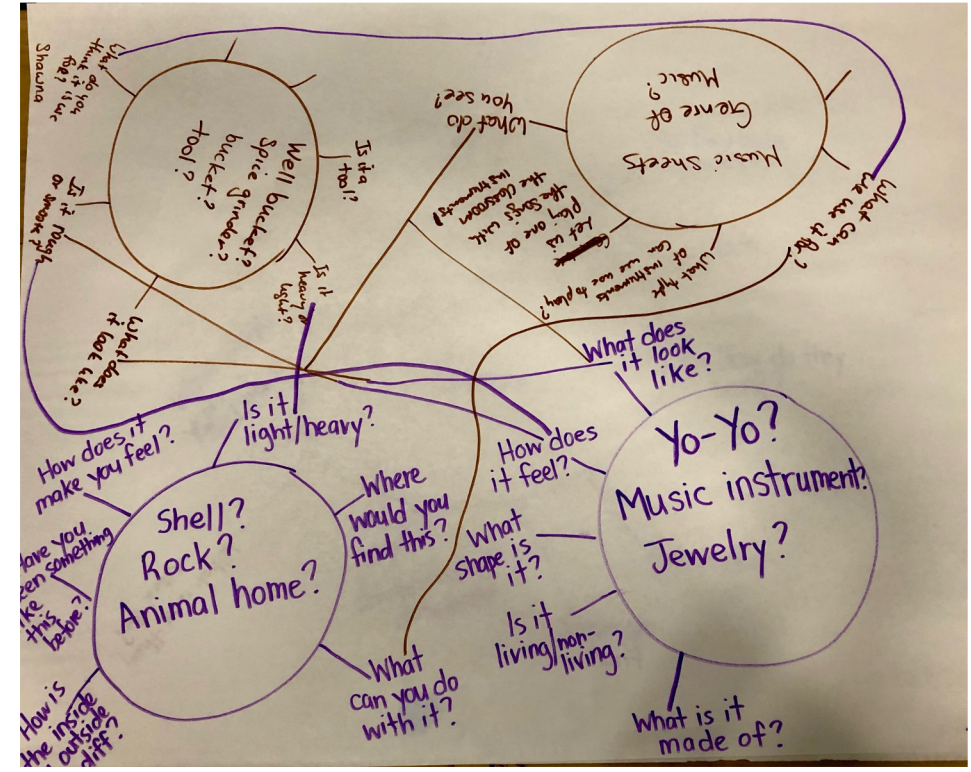 What do you
think it is use
for?
Shawna
Well bucket?
Spice grinder?
bucket?
tool?
Is it a
tool?
Is it
heavy or
light?
Is it rough
or smooth?
What does
it look like?
Music Sheets
Genre of
Music?
What do
you see?
Let us
play one of
the songs with
the classroom
instruments!
What type
of instruments
can we use to play?
What can
we use it for?
Shell?
Rock?
Animal home?
How does it
make you feel?
Is it
light/heavy?
Where
would you
find this?
What
can you do
with it?
Have you
seen something
like
this
before?
How is
the inside
outside
diff?
Yo-Yo?
Music instrument?
Jewelry?
What does
it look
like?
How does
it feel?
What
shape is
it?
Is it
living/non-
living?
What is it
made of?